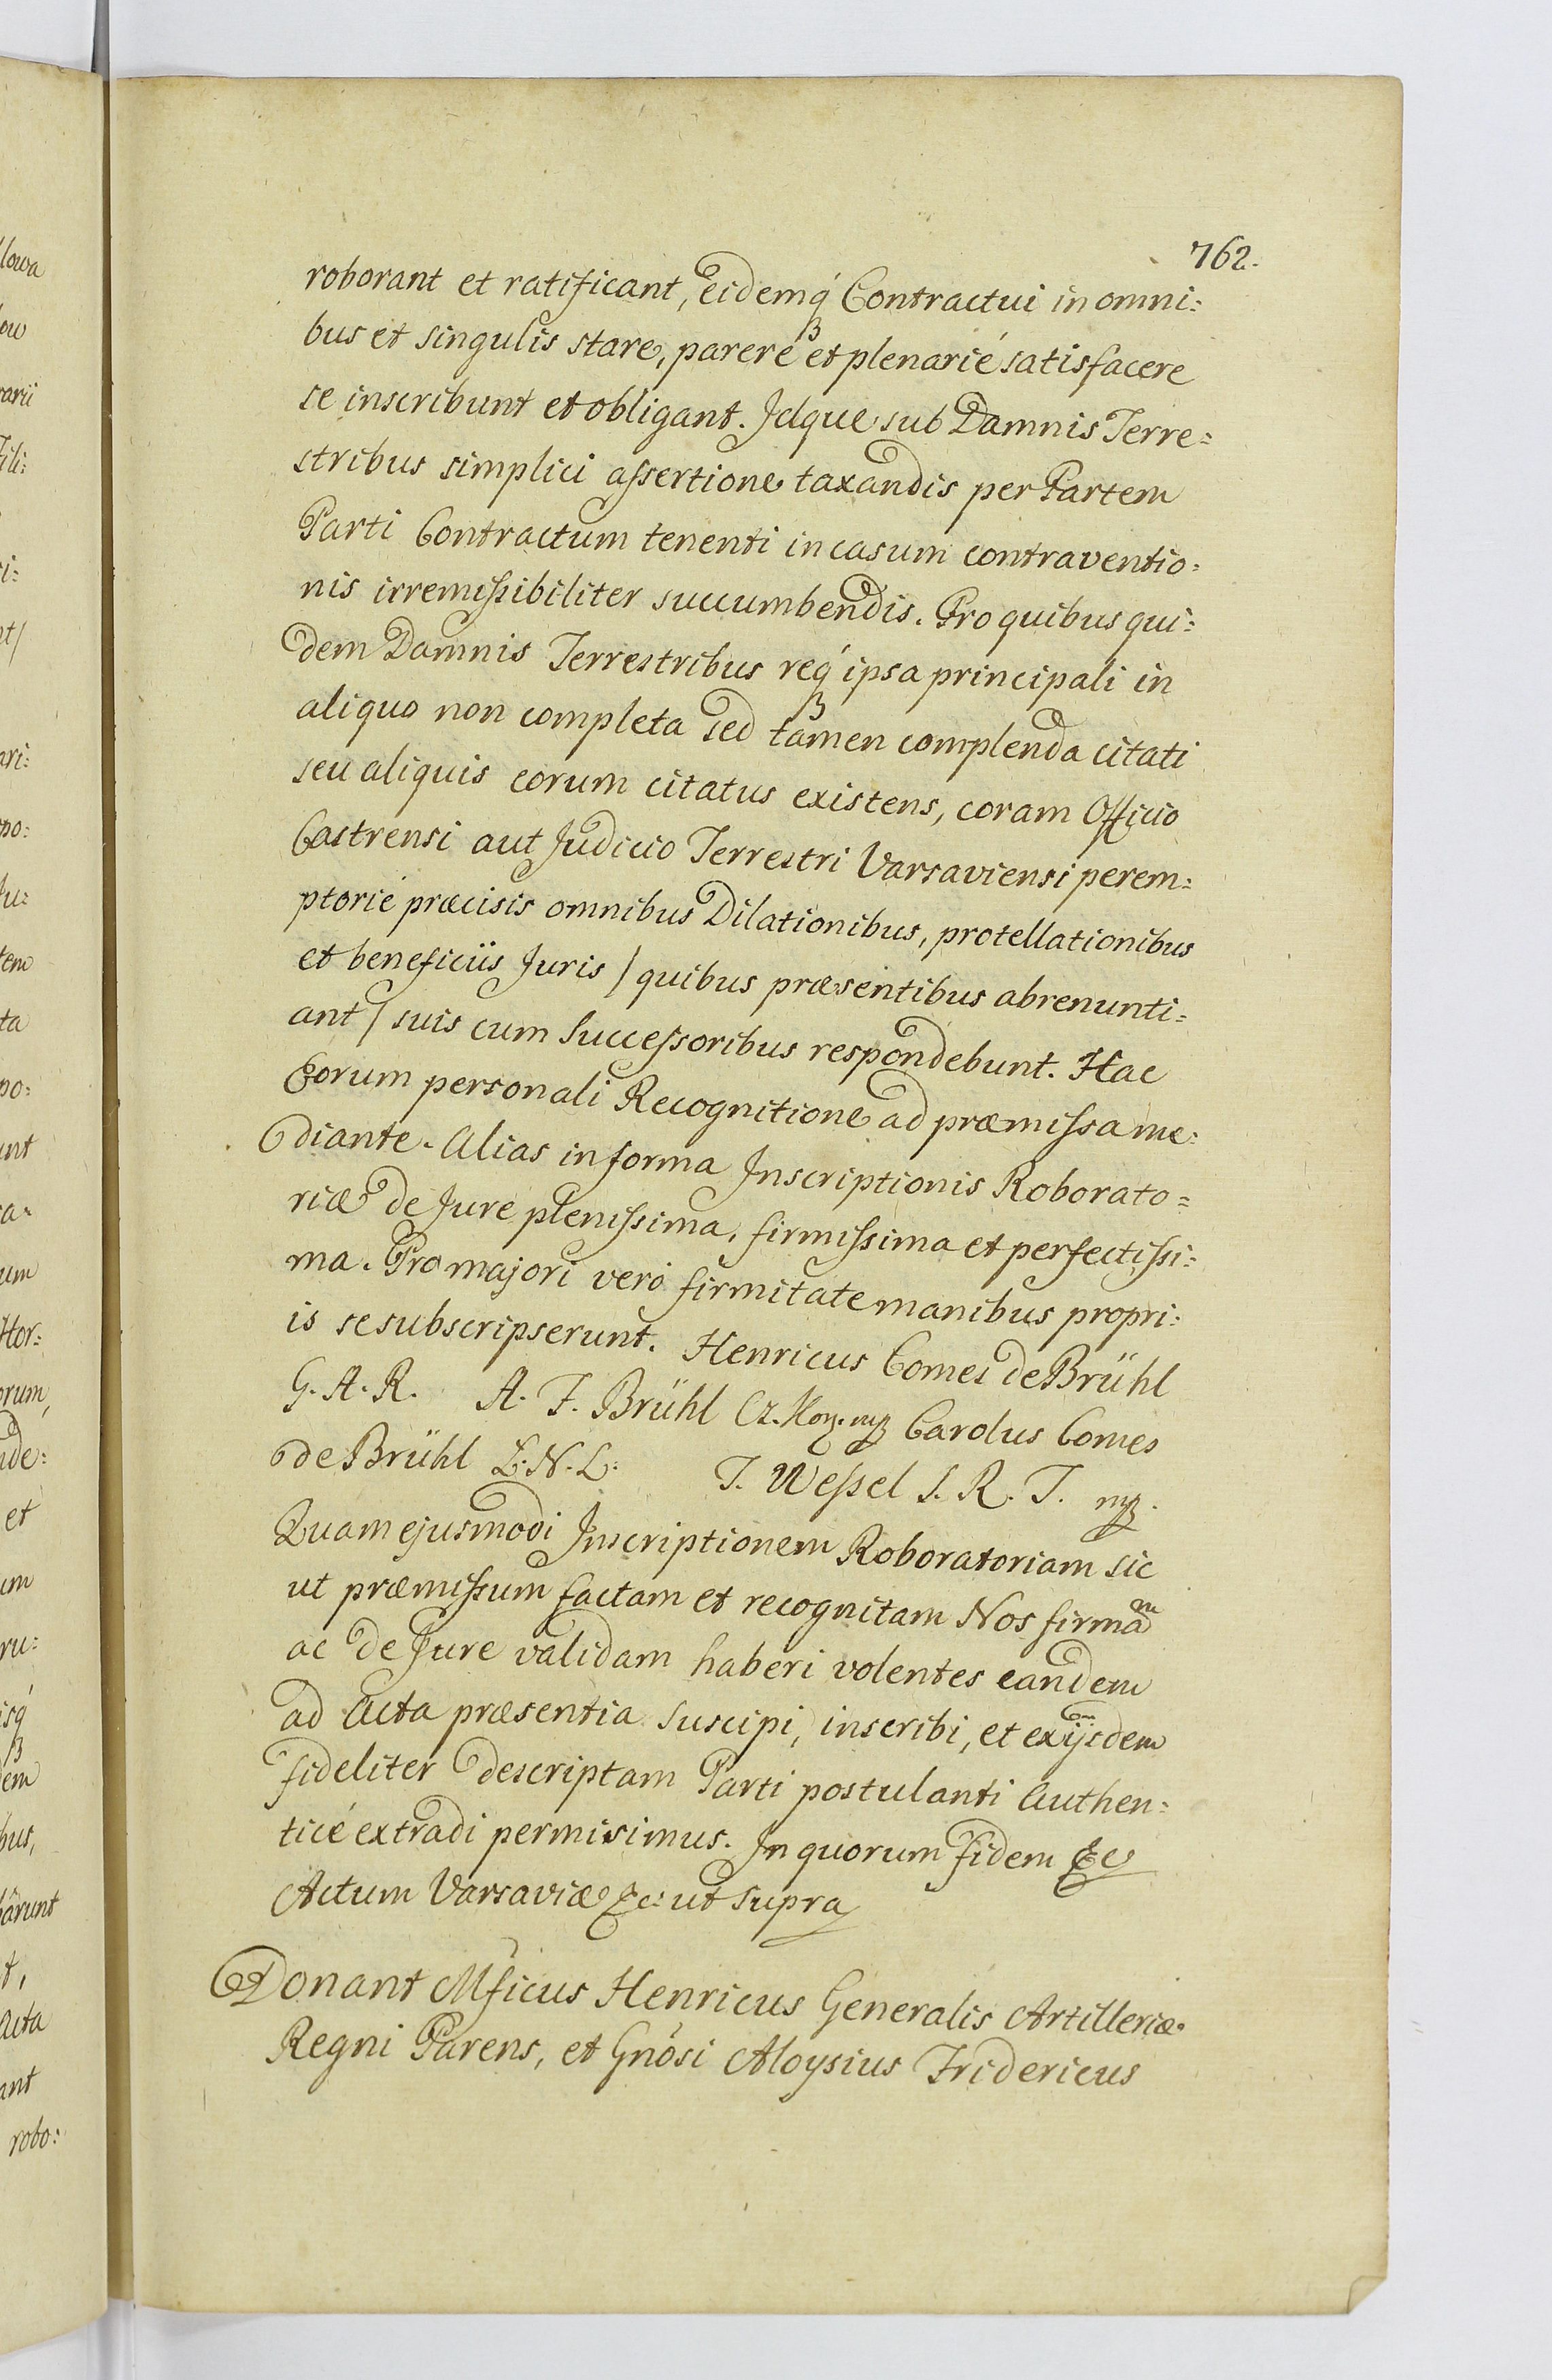 762.
roborant et ratificant, eidemq́ꝫ Contractui in omni:
bus et singulis stare, pareré et plenarié satisfacere
se inscribunt et obligant. Jdque sub Damnis Terre:
stribus simplici aſsertione taxandis per Partem
Parti Contractum tenenti in casum contraventio:
nis irremiſsibiliter succumbendis. Pro quibus qui:
dem Damnis Terrestribus req́ꝫ ipsa principali in
aliquo non completa sed tamen complenda citati
seu aliquis eorum citatus existens, coram Officio
Castrensi aut Judicio Terrestri Varsaviensi perem:
ptorié præcisis omnibus Dilationibus, protellationibus
et beneficiis Juris / quibus præsentibus abrenunti:
ant / suis cum Succeſsoribus respondebunt. Hac
Eorum personali Recognitione ad præmiſsa me:
diante. Alias in forma Jnscriptionis Roborato:
riæ de Jure pleniſsima, firmiſsima et perfectiſsi:
ma. Pro majori veró firmitate manibus propri:
is se subscripserunt. Henricus Comes de Brühl
G. A. R. A. F. Brühl Cz. Kor. mp Carolus Comes
de Brühl L. N. L. T. Weſsel S. R. T. mp.
Quam ejusmodi Jnscriptionem Roboratoriam sic
ut præmiſsum factam et recognitam Nos firmam
ac de Jure validam haberi volentes eandem
ad Acta præsentia suscipi, inscribi, et ex ijsdem
fideliter descriptam Parti postulanti Authen:
ticé extradi permisimus. Jn quorum fidem &c
Actum Varsaviæ &c: ut supra
Donant Mficus Henricus Generalis Artilleriæ
Regni Parens, et Gnosi Aloysius Fridericus
lowa
ow
rarii
Fili:
i:
nt/
ari:
no:
Ju:
tem
ta
no:
unt
ra:
um
Hor:
orum,
nde:
et
um
ru:
isq́ꝫ
dem
bus,
bârunt
t,
Acta
ant
robo: